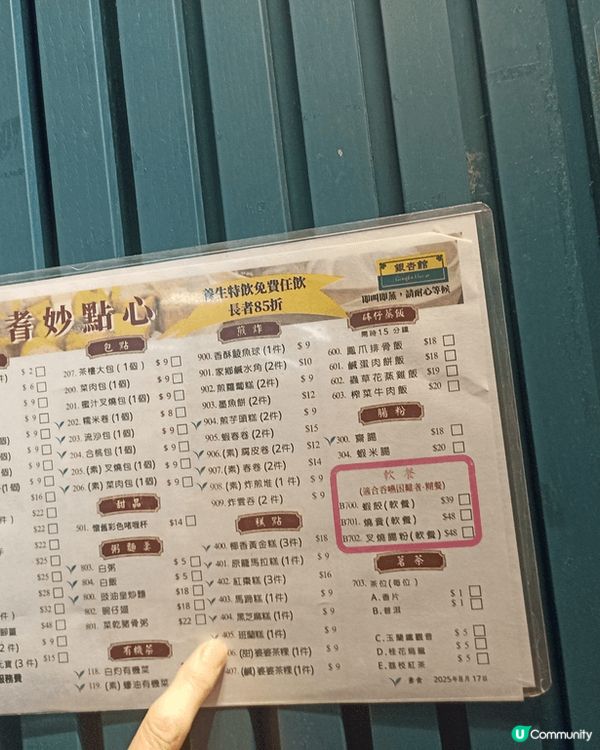 養生特飲免費任飲
長者85折
銀杏館
即叫即蒸，請耐心等候
耆妙點心
包點
207. 茶樓大包 (1個) $9
200. 菜肉包 (1個) $9
201. 蜜汁叉燒包 (1個) $9
202. 糯米卷 (1個) $8
203. 流沙包 (1個) $9
204. 合桃包 (1個) $9
205. (素) 叉燒包 (1個) $9
206. (素) 菜肉包 (1個) $9
甜品
501. 懷舊彩色啫喱杯 $14
粥麵羹
803. 白粥 $5
804. 白飯 $5
800. 豉油皇炒麵 $18
802. 碗仔翅 $18
801. 菜乾豬骨粥 $22
有機菜
118. 白灼有機菜
119. (素) 蠔油有機菜
煎炸
900. 香酥鯪魚球 (1件) $9
901. 家鄉鹹水角 (2件) $10
902. 煎蘿蔔糕 (2件) $9
903. 墨魚餅 (2件) $12
904. 煎芋頭糕 (2件) $9
905. 蝦春卷 (2件) $15
906. (素) 腐皮卷 (2件) $12
907. (素) 春卷 (2件) $14
908. (素) 炸煎堆 (1件) $9
909. 炸雲吞 (2件) $9
糕點
400. 椰香黃金糕 (3件) $18
401. 原籠馬拉糕 (1件) $9
402. 紅棗糕 (3件) $16
403. 馬蹄糕 (1件) $9
404. 黑芝麻糕 (1件) $9
405. 班蘭糕 (1件) $9
06. (甜) 婆婆茶粿 (1件) $9
407. (鹹) 婆婆茶粿 (1件) $9
砵仔蒸飯
需時15分鐘
600. 鳳爪排骨飯 $18
601. 鹹蛋肉餅飯 $18
602. 蟲草花蒸雞飯 $19
603. 榨菜牛肉飯 $20
腸粉
300. 齋腸 $18
304. 蝦米腸 $20
軟餐
(適合吞嚥困難者-糊餐)
B700. 蝦餃 (軟餐) $39
B701. 燒賣 (軟餐) $48
B702. 叉燒腸粉 (軟餐) $48
茗茶
703. 茶位 (每位)
A. 香片 $1
B. 普洱 $1
C. 玉蘭鐵觀音 $5
D. 桂花烏龍 $5
E. 荔枝紅茶 $5
素食 2025年8月17日
U Community